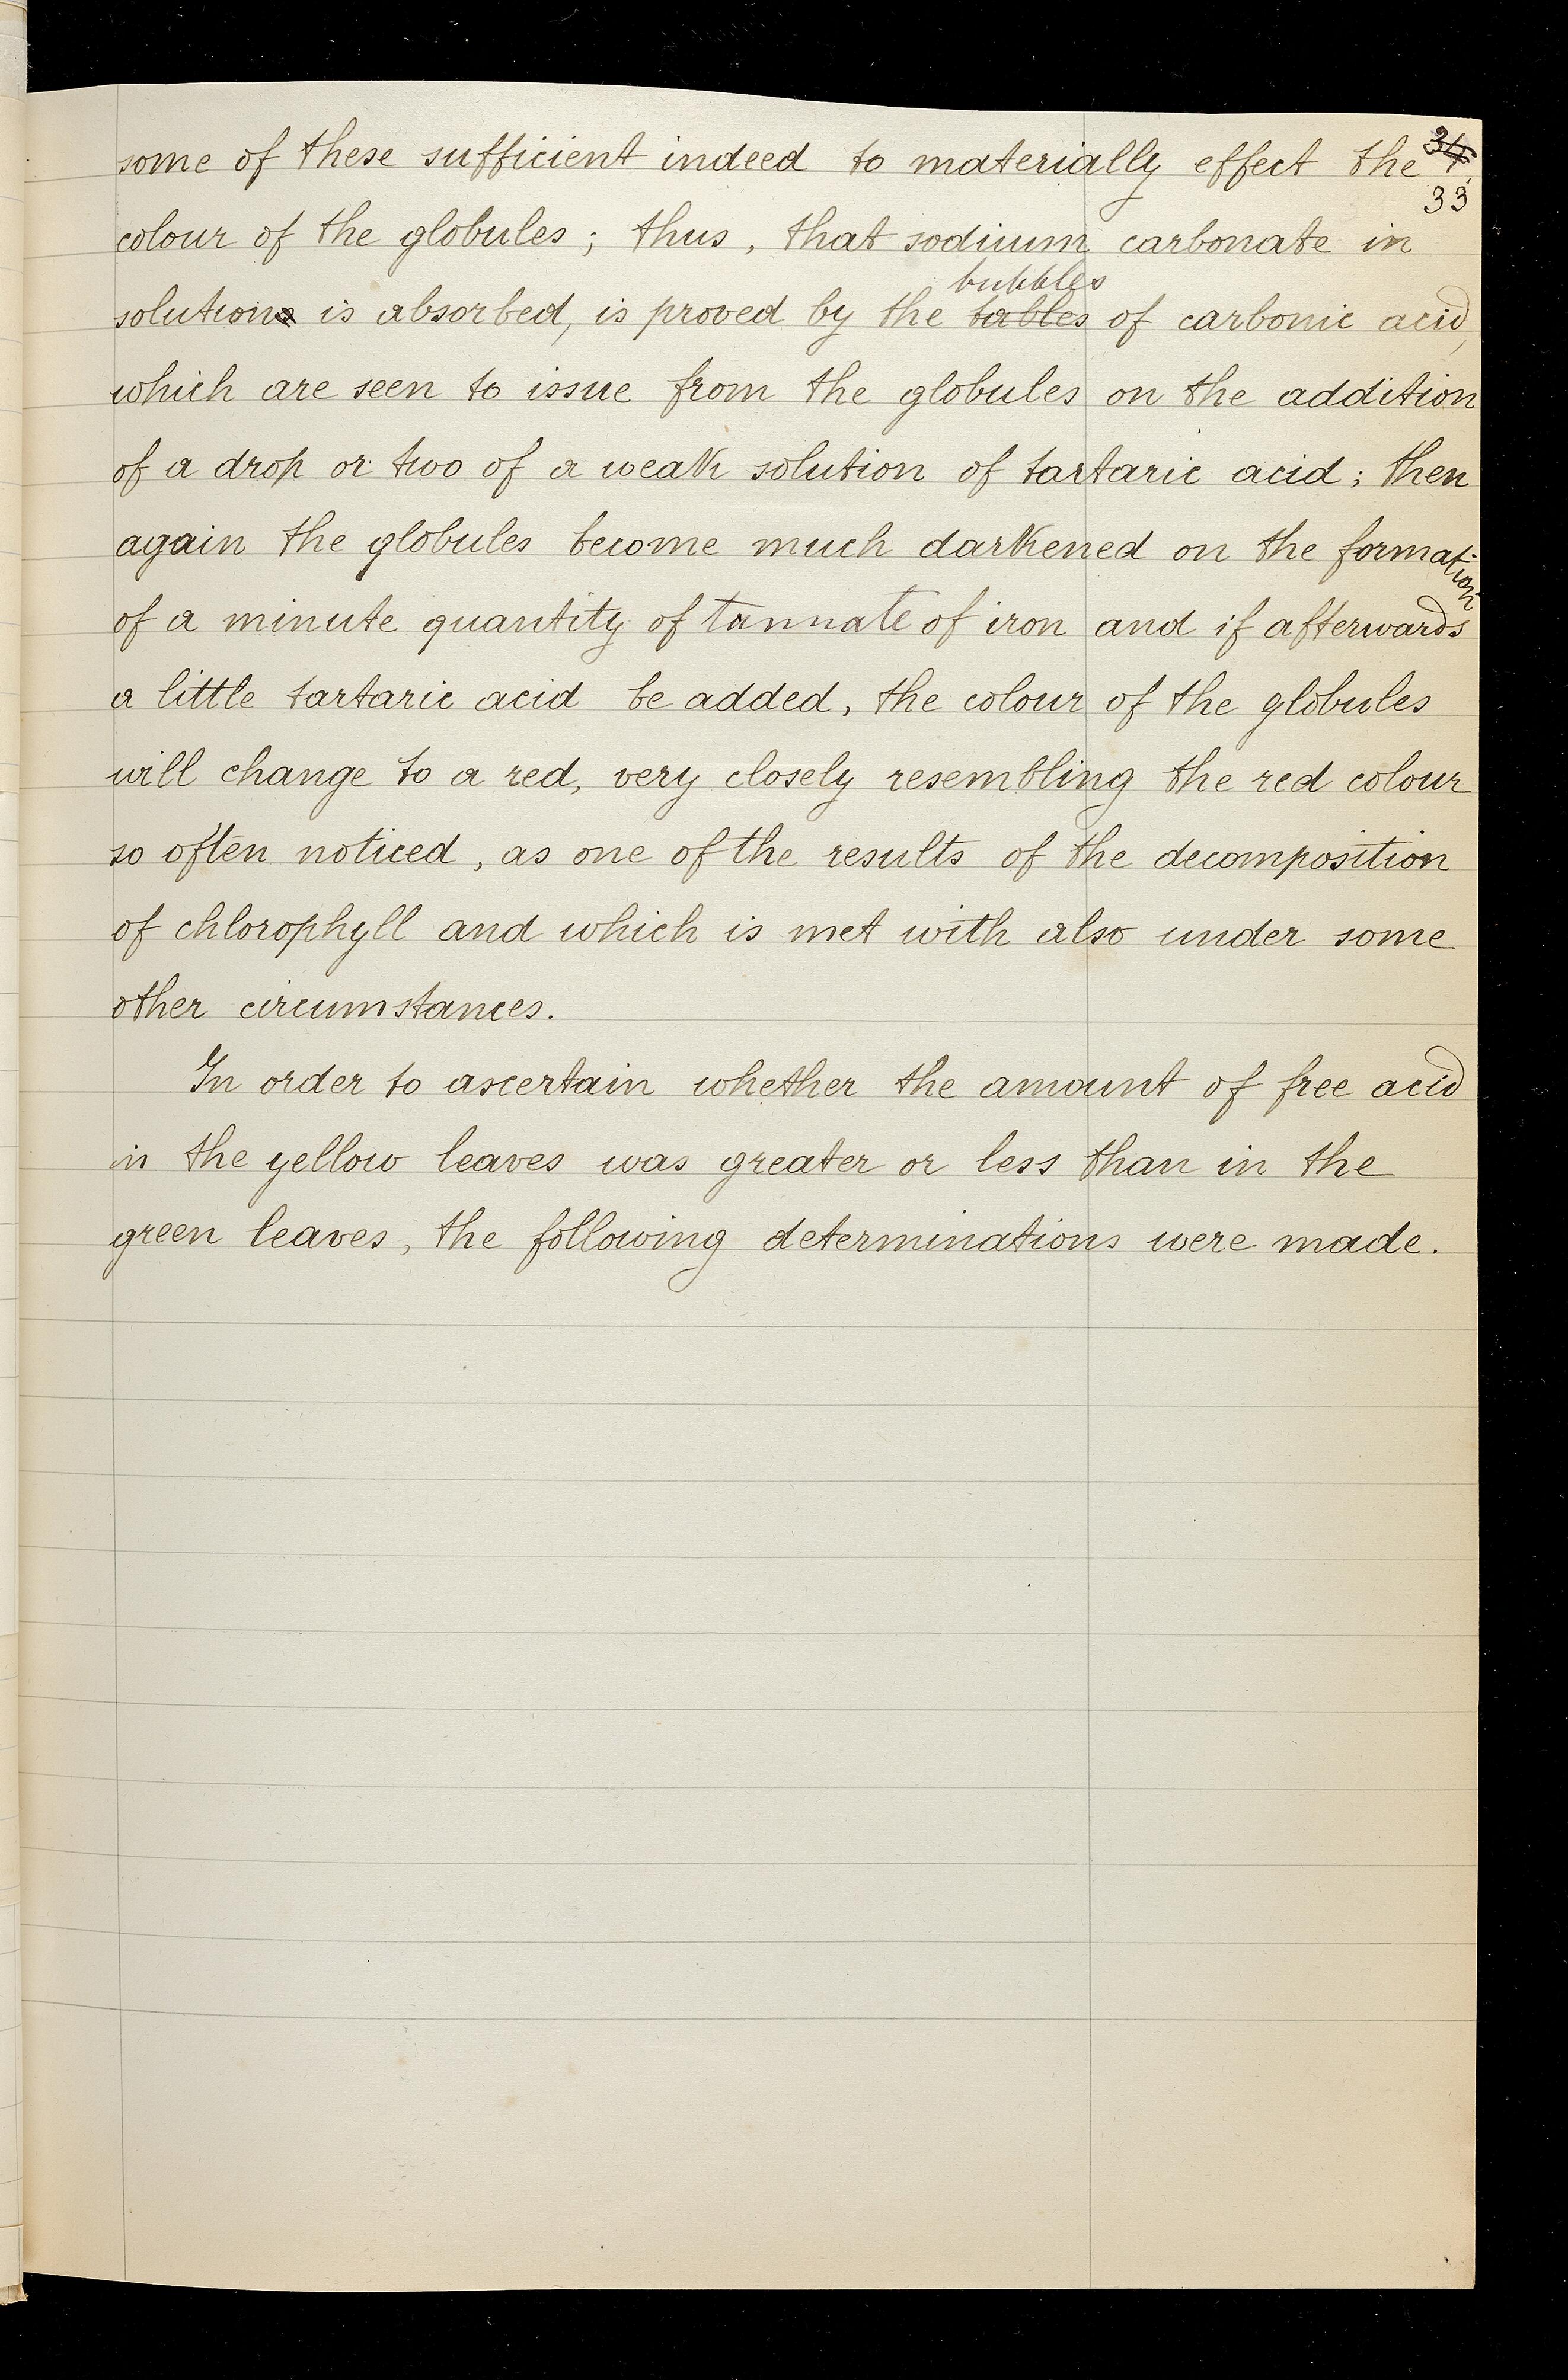 some of these sufficient indeed to materially effect the 34
33
colour of the globules; thus, that sodium carbonate in
bubbles
solutions is absorbed, is proved by the tables of carbonic acid,
which are seen to issue from the globules on the addition
of a drop or two of a weak solution of tartaric acid; then
again the globules become much darkened on the formation
of a minute quantity of tannate of iron and if afterwards
a little tartaric acid be added, the colour of the globules
will change to a red, very closely resembling the red colour
so often noticed, as one of the results of the decomposition
of chlorophyll and which is met with also under some
other circumstances.
In order to ascertain whether the amount of free acid
in the yellow leaves was greater or less than in the
green leaves, the following determinations were made.